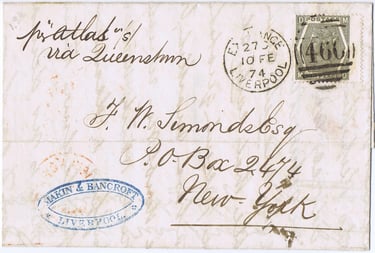 p "Atlas" s/
via Queenstown
EXCHANGE
LIVERPOOL
10 FE
74
466
F. W. Simonds Esq
P.O. Box 2474
New York
MAKIN & BANCROFT
LIVERPOOL